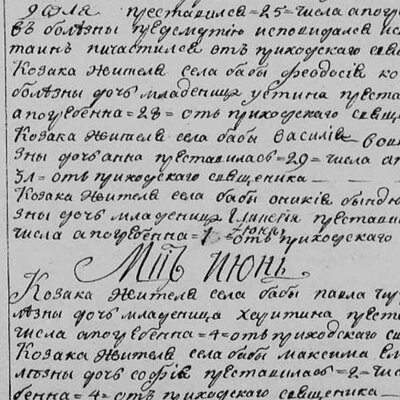 дѣля преставился = 25 = числа апогр
въ болѣзны предсмутию исповидался ис
таинъ пичастился отъ приходскаго свя
Козака жителя села бабы Феодосія ко
болѣзны дочъ младеница устина преста
апогребенна = 28 = отъ приходскаго свяще
Козака жителя села бабы Василія вои
зны дочъ анна преставиласъ = 29 = числа ап
31 = отъ приходскаго священика
Козака жителя села бабы оникія бындю
зны дочъ младеница преставил
числа апогребенна = 1 = июня отъ приходскаго
Мцъ июнь
Козака жителя села бабы павла
лѣзны дочъ младеница Харитина преста
числа апогребенна = 4 = отъ приходскаго св
Козака жителя села бабы максима ем
лѣзны дочъ софія преставиласъ = 2 = числ
бенна = 4 = отъ приходскаго священика